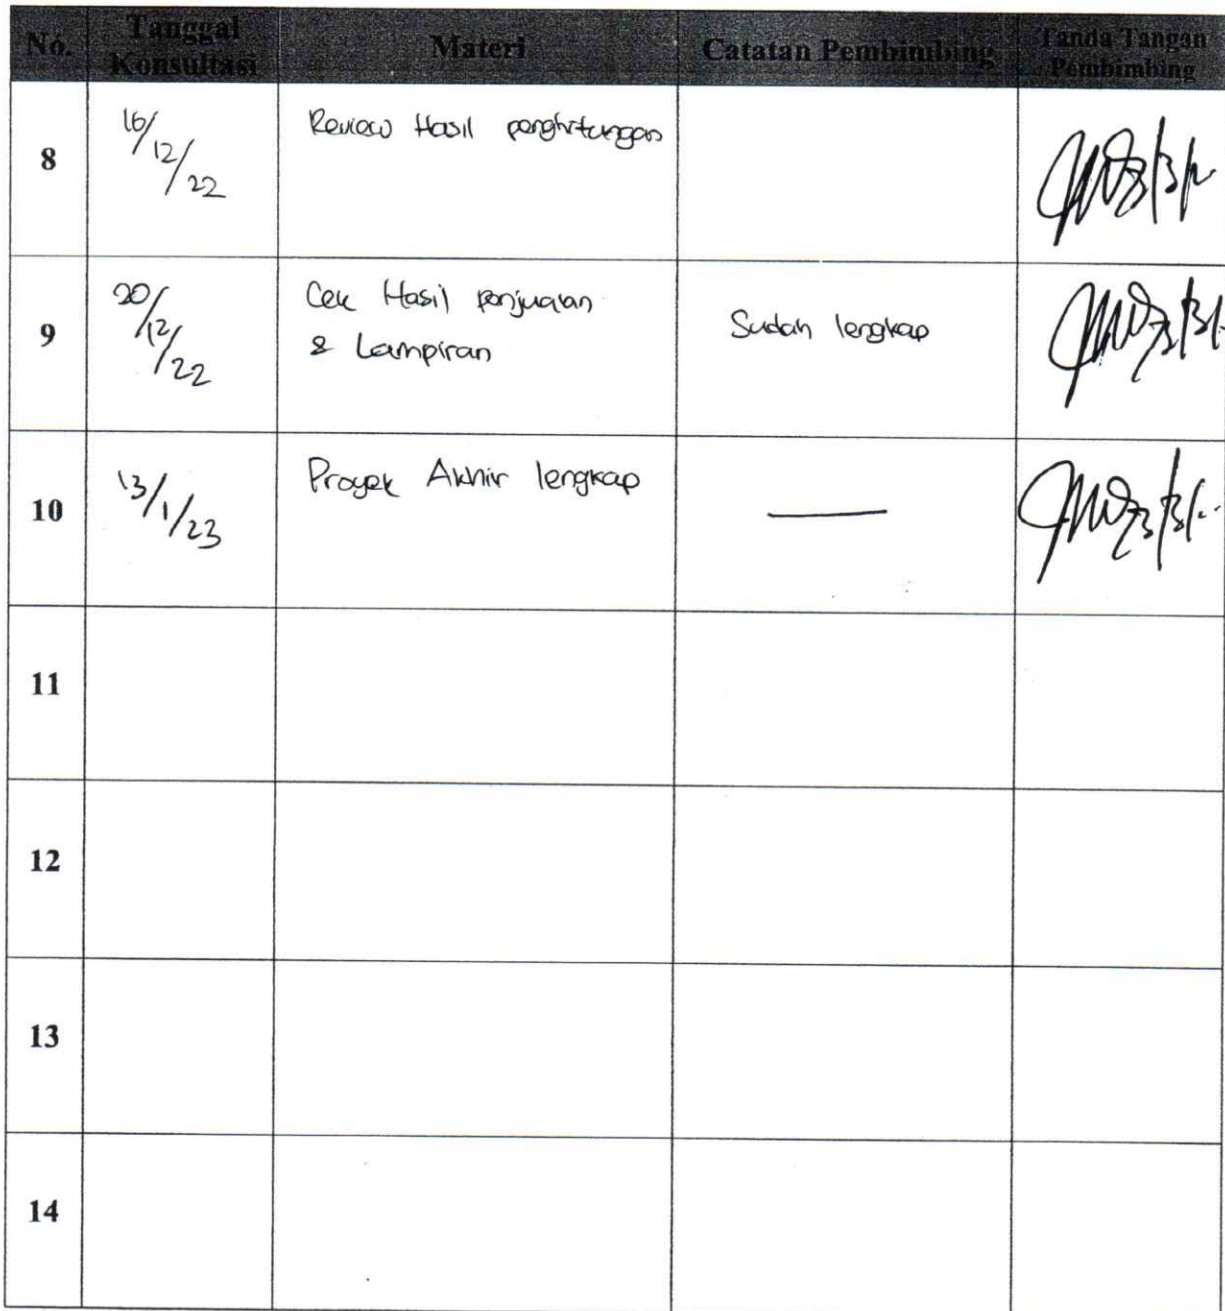 No.
Tanggal
Konsultasi
Materi
Catatan Pembimbing
Tanda Tangan
Pembimbing
8
16/12/22
Review Hasil penghitungan
9
20/12/22
Cek Hasil penjualan
& Lampiran
Sudah lengkap
10
13/1/23
Proyek Akhir lengkap
—
11
12
13
14